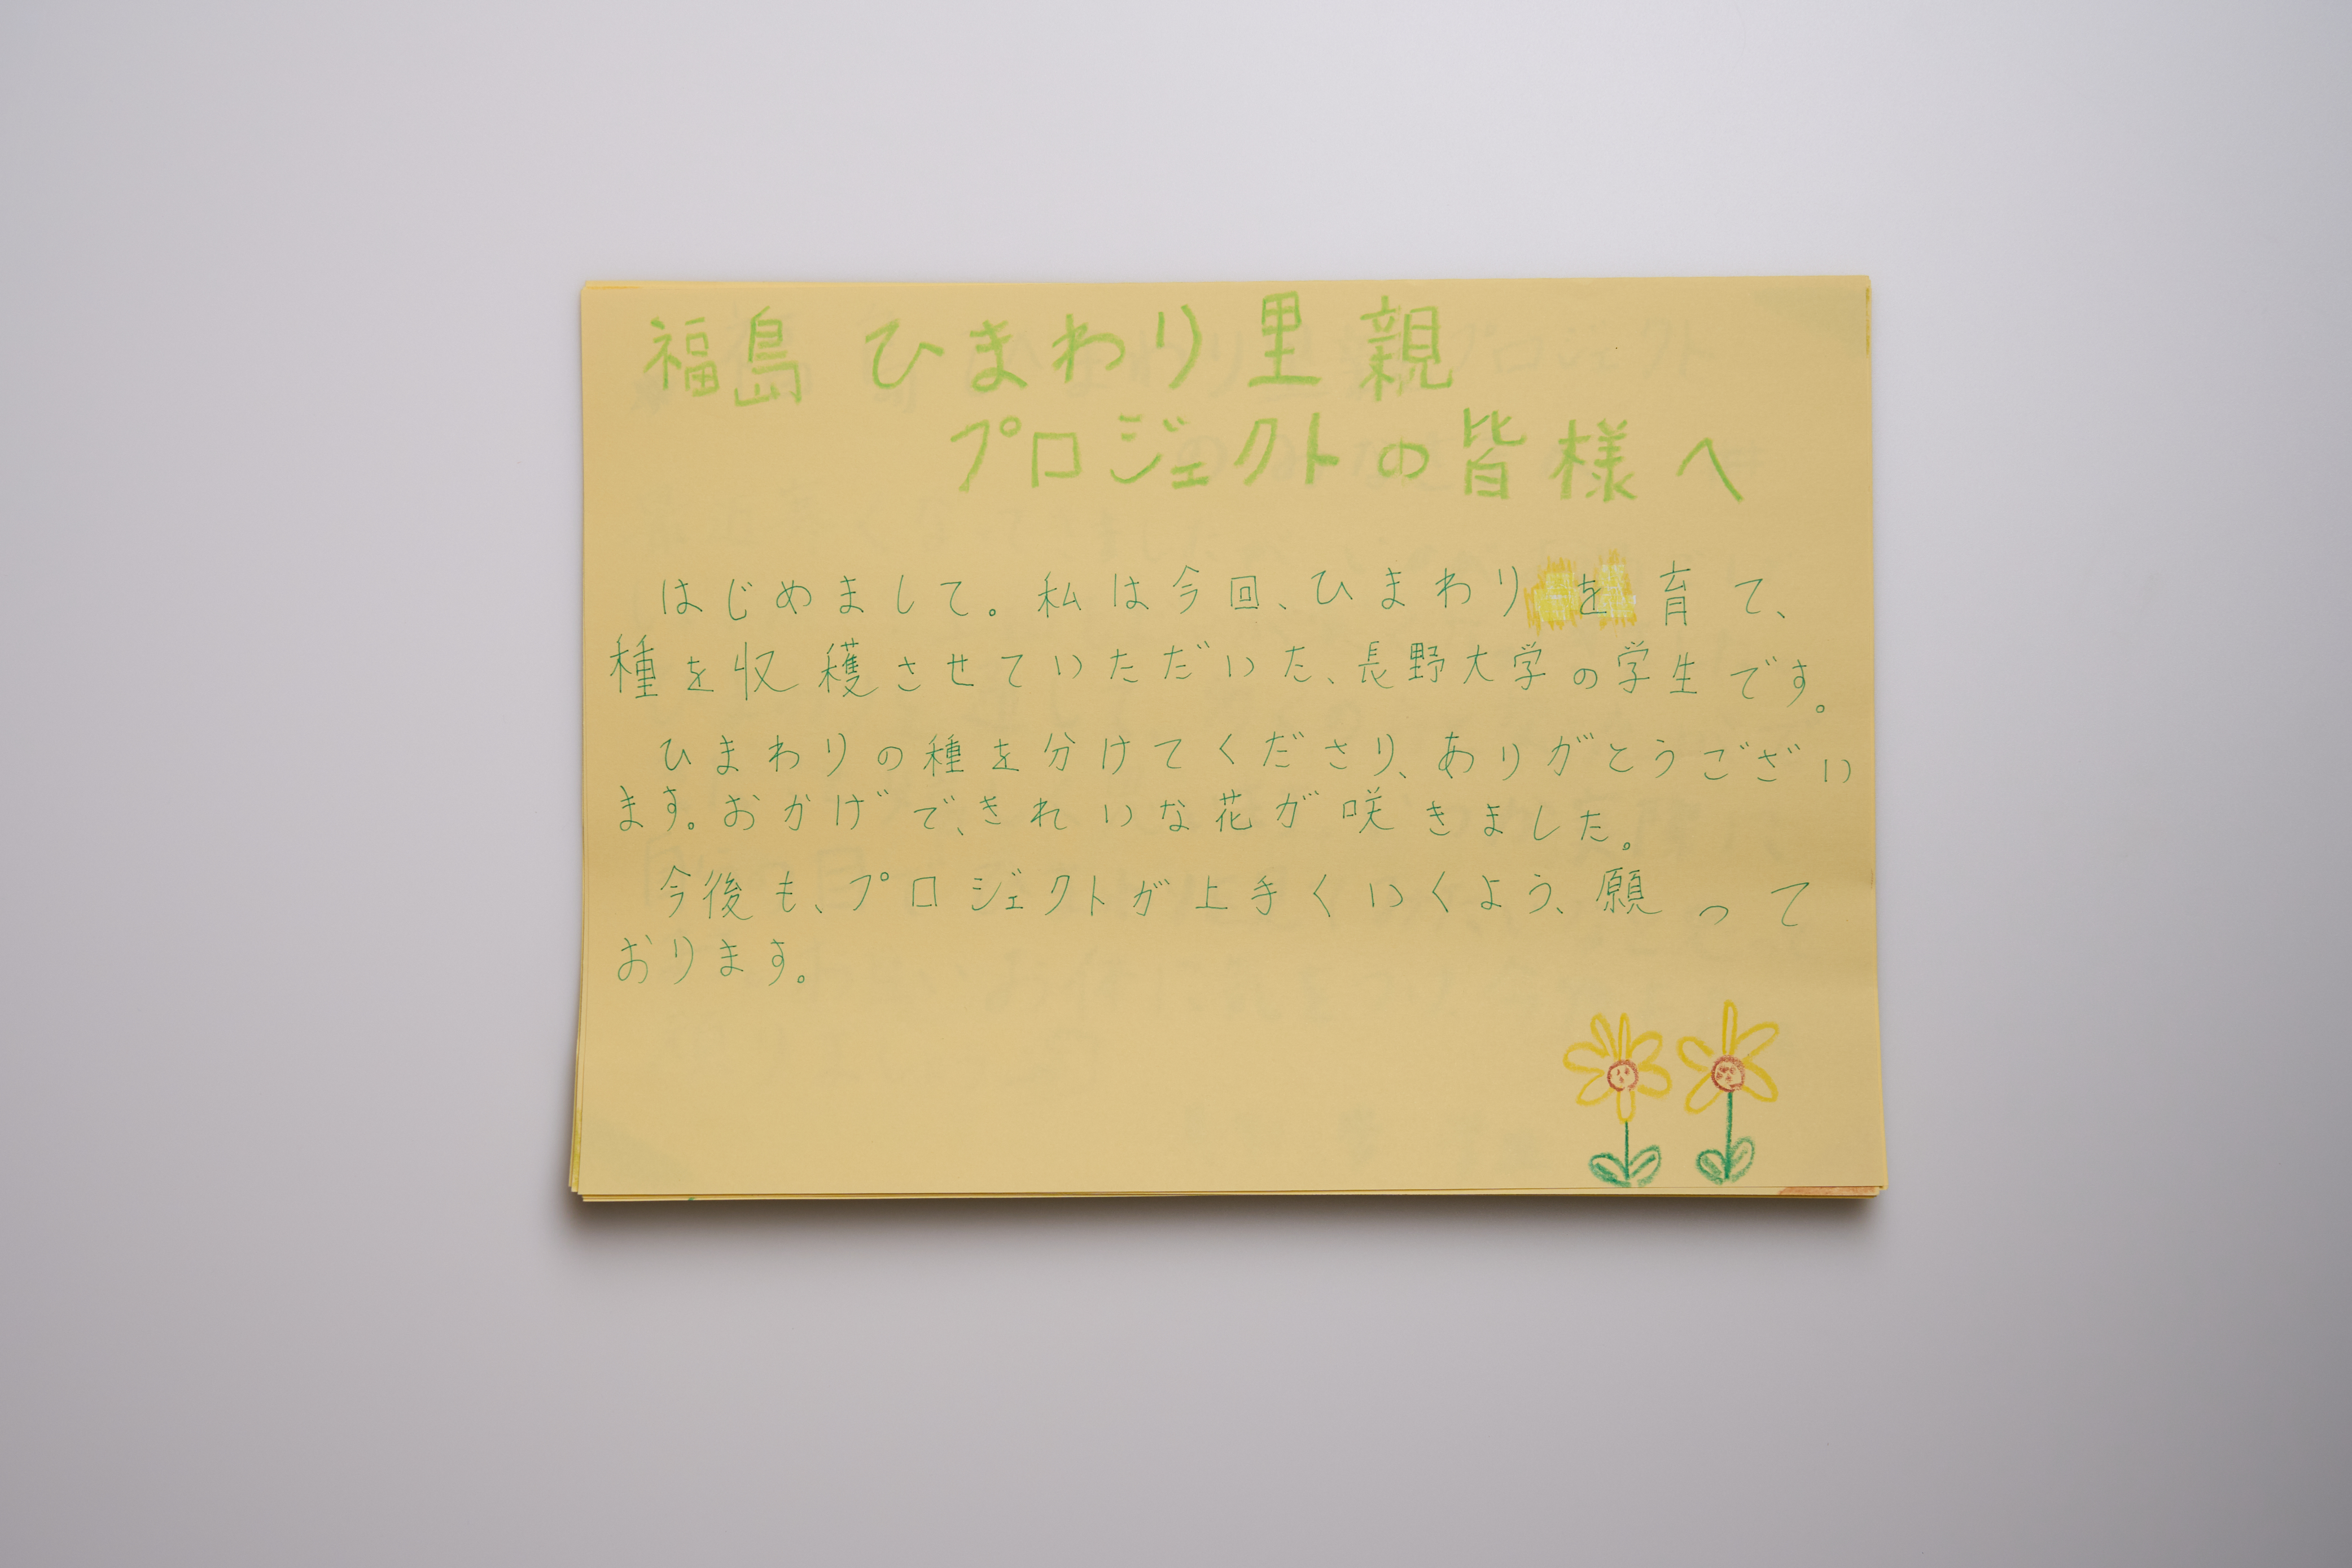 福島 ひまわり里親
プロジェクトの皆様へ
はじめまして。私は今回、ひまわりを育て、
種を収穫させていただいた、長野大学の学生です。
ひまわりの種を分けてくださり、ありがとうござい
ます。おかげで、きれいな花が咲きました。
今後も、プロジェクトが上手くいくよう、願って
おります。